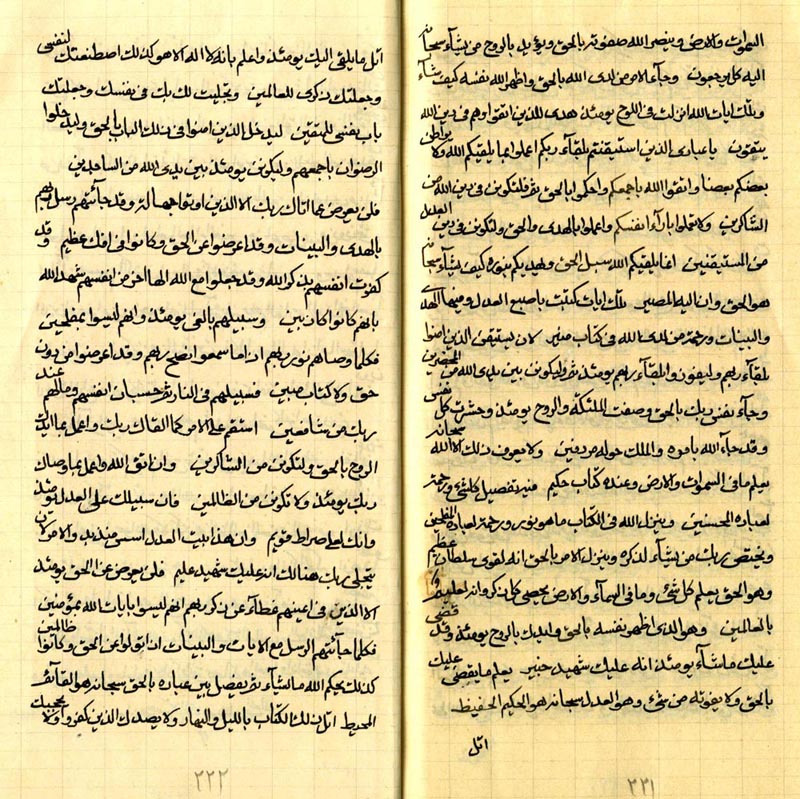 السموات والارض وينصر الله صفوته بالحق ويؤيد بالروح من يشآء سبحانه
اليه كل يرجعون وجآء الامر من لدى الله بالحق واظهر الله نفسه كيف شآء
وتلك ايات الله انزلت فى اللوح يومئذ هدى للذين اتقوا وهم فى دين الله
يتقون يا عبادى الذين استيقنتم بلقآء ربكم اعملوا بما يلقيكم الله ولا يواطئ
بعضكم بعضا واتقوا الله باجمعكم واحكموا بالحق ثم لتكونن فى دين الله من
الشاكرين ولا تعملوا بارآء انفسكم واعملوا بالهدى والحق ولتكونن فى دين العدل
من المستيقنين انما يلقيكم الله سبل الحق ويهديكم بنوره كيف يشآء سبحانه
هو الحق وان اليه المصير تلك ايات كتبت باصبع العدل ومنهآ الهدى
والبينات ورحمة من لدى الله فى كتاب منير لان يستيقن الذين امنوا
بلقآء ربهم وليفون والبقآء ربهم يومئذ ثم وليكونن بين يدى الله من المحضرين
وجآء نفس ربك بالحق وصفت الملئكة والروح يومئذ وحشرت كل نفس
وقد جآء الله بامره والملك حوله مردفين ولا يعرف ذلك الا الله سبحانه
يعلم ما فى السموات والارض وعنده كتاب حكيم فيه تفصيل كلشئ ورحمة
لعباده المحسنين وينزل الله فى الكتاب ما هو نور ورحمة لعباده المفلحين
ويختص ربك من يشآء لذكره وينزل الامر بالحق انه لقوى سلطان عظيم
وهو الحق يعلم كل شئ وما فى السمآء والارض يحصى كل ذكر وانه لعليم
بالعالمين وهو الذى اظهر نفسه بالحق وايدك بالروح يومئذ وقد قضى
عليك ما شآء يومئذ انه عليك شهيد خبير يعلم ما يقضى عليك
بالحق ولا يفوته من شئ وهو العدل سبحانه هو الحكيم الحفيظ
اتل
٢٢١
اتل ما يلقى اليك يومئذ واعلم بانه لا اله الا هو كذلك اصطنعتك لنفسى
وجعلتك ذكرى للعالمين وتجليت لك بك فى نفسك وجعلتك
باب نفسى للمتقين ليدخل الذين امنوا فى ذلك الباب بالحق وليدخلوا
الرضوان باجمعهم وليكونن يومئذ بين يدى الله من الساجدين
فلن يعرض عما اتاك ربك الا الذين اوتوا جهالة وقد جآئتهم رسل ربهم
بالهدى والبينات وقد اعرضوا عن الحق وكانوا فى افك عظيم وقد
كفرت انفسهم بذكر الله وقد جعلوا مع الله الها اخر من انفسهم شهد الله
بانهم كانوا كاذبين وسبيلهم بالغى يومئذ وانهم ليسوا بمفلحين
فكلما وصاهم نور ربهم ان ما سمعوا نصح ربهم وقد اعرضوا من دون
حق ولا كتاب مبين فسبيلهم فى النار ثم حسبان انفسهم وما لهم عند
ربك من شافعين استقم على الامر كما القاك ربك واعمل بما اتيك
الروح بالحق ولتكونن من الشاكرين وان اتق الله واعمل بما وصاك
ربك يومئذ ولا تكونن من الظالمين فان سبيلك على العدل يومئذ
وانك لعلى صراط قويم وان هذا بيت العدل اسس من ذى بدء والامر كان
يتجلى ربك هنالك انه عليك شهيد عليم فلن يعرض عن الحق يومئذ
الا الذين فى اعينهم غطآء عن ذكر ربهم انهم ليسوا بايات الله بمؤمنين
فكلما جآئتهم الرسل مع الايات والبينات ان اتولوا عن الحق وكانوا ظالمين
كذلك يحكم الله ما يشآء ثم يفصل بين عباده بالحق سبحانه هو القآئم
المحيط اتل ذلك الكتاب بالليل والنهار ولا يصدك الذين كفروا ولا يحجبك
٢٢٢